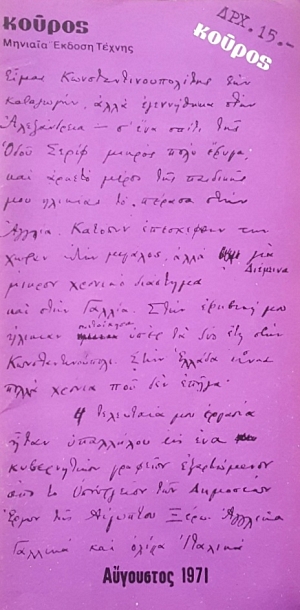 κοῦρος
Μηνιαία Έκδοση Τέχνης
ΔΡΧ. 15.-
κοῦρος
Εἶμαι Κωνσταντινουπολίτης τὴν
καταγωγήν, ἀλλὰ ἐγεννήθηκα στὴν
Ἀλεξάνδρεια — σ' ἕνα σπίτι τῆς
ὁδοῦ Σερίφ· μικρὸς πολὺ ἔφυγα,
καὶ ἀρκετὸ μέρος τῆς παιδικῆς
μου ἡλικίας τὸ πέρασα στὴν
Ἀγγλία. Κατόπιν ἐπισκέφθην τὴν
χώραν αὐτὴν μεγάλος, ἀλλὰ γιὰ
μικρὸν χρονικὸ διάστημα. Διέμεινα
καὶ στὴν Γαλλία. Στὴν ἐφηβικήν μου
ἡλικίαν κατοίκησα ὑπὲρ τὰ δύο ἔτη στὴν
Κωνσταντινούπολι. Στὴν Ἑλλάδα εἶναι
πολλὰ χρόνια ποὺ δὲν ἐπῆγα.
Ἡ τελευταία μου ἐργασία
ἦταν ὑπαλλήλου εἰς ἕνα
κυβερνητικὸν γραφεῖον ἐξαρτώμενον
ἀπὸ τὸ ὑπουργεῖον τῶν Δημοσίων
Ἔργων τῆς Αἰγύπτου. Ξέρω Ἀγγλικά,
Γαλλικὰ καὶ ὀλίγα Ἰταλικά
Αὔγουστος 1971